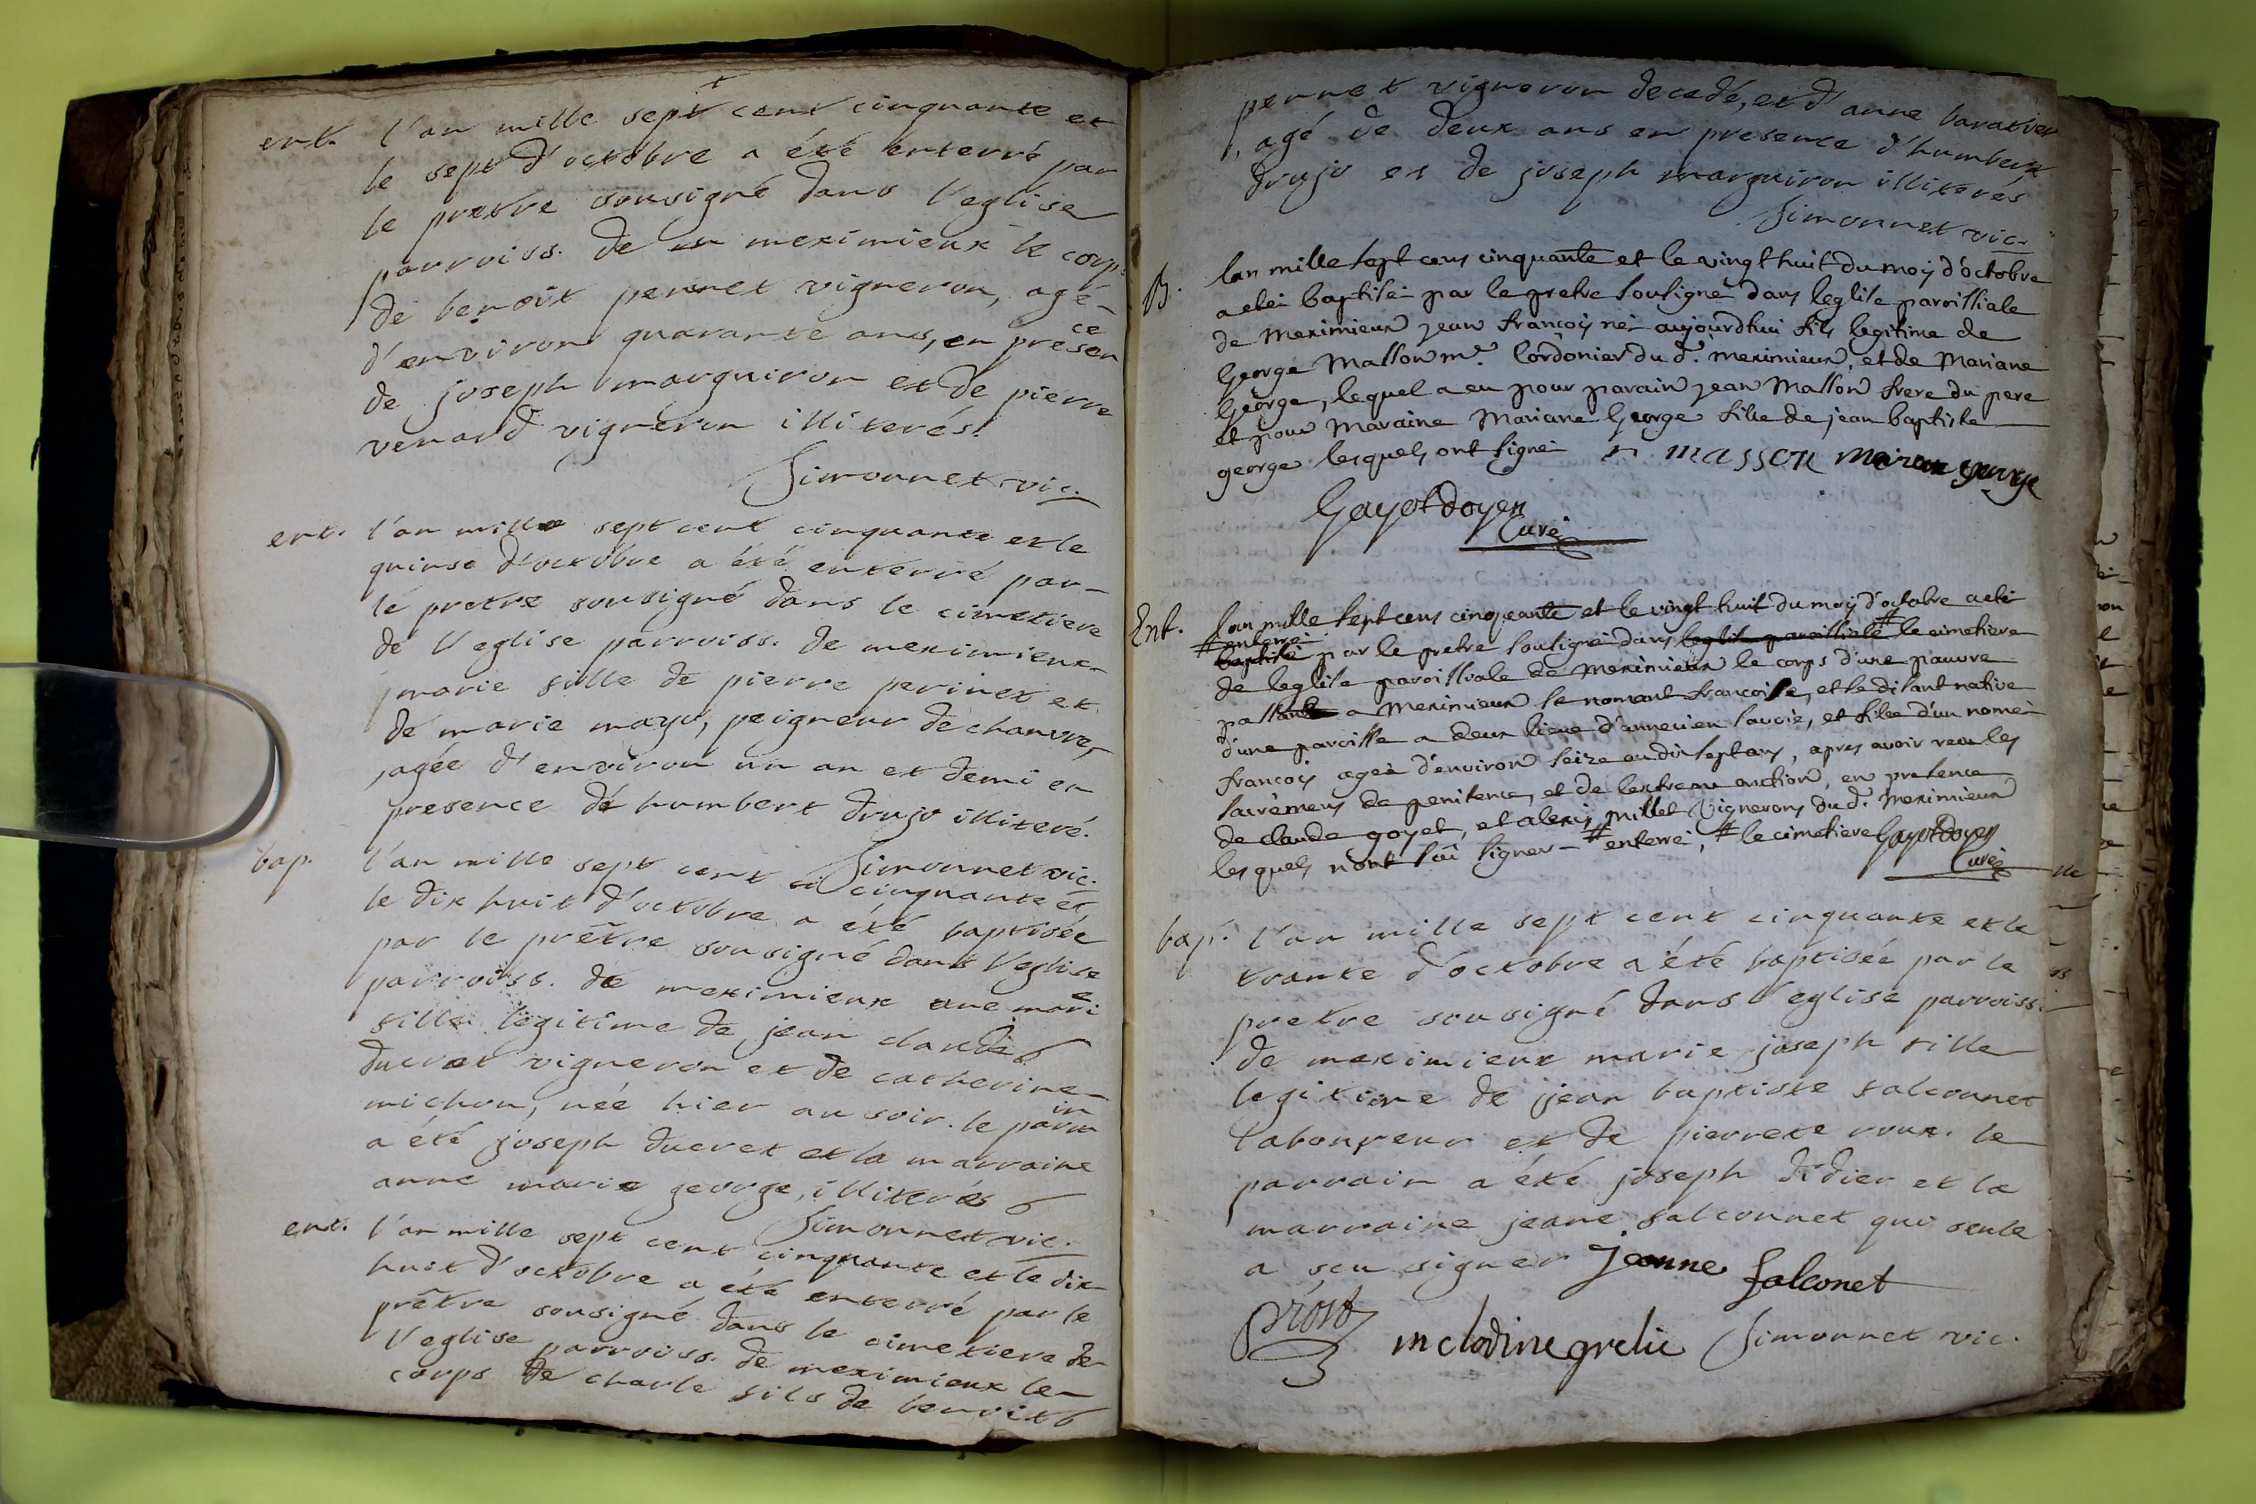 ent. l'an mille sept cent cinquante et
le sept d'octobre a été enterré par
le pretre sousigné dans l'eglise
parroiss. de meximieux le corp.
de benoit pernet vigneron, agé
d'environ quarante ans, en presence
de joseph marguiron et de pierre
venard vigneron illiterés.
Simonnet vic.
ent. l'an mille sept cent cinquante et le
quinse d'octobre a été enterré par
le pretre sousigné dans le cimetiere
de l'eglise parroiss. de meximieux
marie fille de pierre perinet et
de marie mayo, peigneur de chanvre,
agée d'environ un an et demi en
presence de humbert drujo illiteré.
Simonnet vic.
bap. l'an mille sept cent cinquante et
le dix huit d'octobre a été baptisée
par le prêtre sousigné dans l'eglise
parroiss. de meximieux une marie
fille legitime de jean claude
ducret vigneron et de catherine
michon, née hier au soir. le parin
a été joseph ducret et la marraine
anne marie george, illiterés
Simonnet vic.
ent. l'an mille sept cent cinquante et le dix
huit d'octobre a été enterré par le
prêtre sousigné dans le cimetiere de
l'eglise parroiss. de meximieux le
corps de charle fils de benoit
pernet vigneron decedé, et d'anne baratier
agé de deux ans en presence d'humbert
drujo et de joseph marguiron illiterés
Simonnet vic.
B. lan mille sept cens cinquante et le vingt huit du moy d'octobre
a etéi baptiséi par le pretre sousigné dans leglise paroissiale
de Meximieux jean francois néi aujourdhui fils legitime de
George Masson me. Cordonier du d. meximieux, et de Mariane
George, lequel a eu pour parain jean Masson frere du pere
et pour Maraine Mariane George fille de jean baptiste
george lesquels ont signéi n masson marian george
Gayot doyen
Curéi
Ent. lan mille sept cens cinqante et le vingt huit du moy d'octobre a etéi
# enterréi
baptiséi par le pretre sousignéi dans leglise paroissiale # le cimetiere
de leglise paroissiale de Meximieux le corps d'une pauvre
passante a Meximieux se nomant francoise, et se disant native
d'une paroisse a deux lieue d'annecien savoie, et fille d'un noméi
francois ageé d'environ seize ou dix sept ans, apres avoir recu les
sacremens de penitence, et de lextreme onction, en presence
de claude goyet, et alexis millet vignerons du d. Meximieux
lesquels n'ont sûi signer - # enterréi, # le cimetiere Gayot doyen
Curéi
bap. l'an mille sept cent cinquante et le
trante d'octobre a été baptisée par le
pretre sousigné dans l'eglise parroiss.
de meximieux marie joseph fille
legitime de jean baptiste falconnet
laboureur et de pierrete roux. le
parrain a été joseph didier et la
marraine jeane falconnet qui seule
a sçu signer jeanne falconet
prost m clodine grelic Simonnet vic.